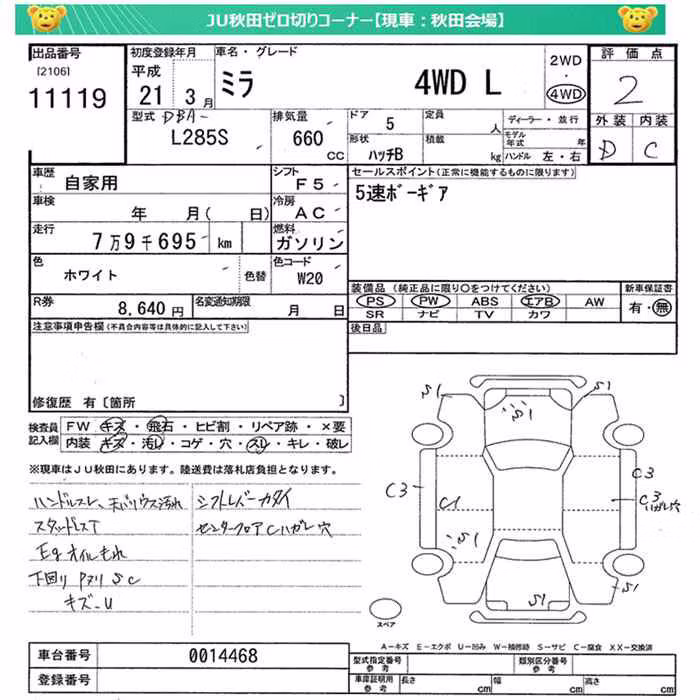 JU秋田ゼロ切りコーナー【現車：秋田会場】
出品番号
[2106]
11119
初度登録年月
平成
21 3月
車名・グレード
ミラ 4WD L
2WD
・
4WD
評価点
2
外装 内装
D C
型式 DBA-
L285S
排気量
660
CC
ドア 5
形状 ハッチB
定員 人
積載 kg
ディーラー・並行
モデル年式 年
ハンドル 左・右
車歴 自家用
シフト F5
車検 年 月( 日)
冷房 AC
走行 7万9千695 km
燃料 ガソリン
色 ホワイト 色替
色コード W20
R券 8,640円
名変通知期限 月 日
セールスポイント(正常に機能するものに限ります)
5速ボーギア
装備品(純正品に限り○をつけてください)
PS PW ABS エアB AW
SR ナビ TV カワ
新車保証書
有・無
後日品
注意事項申告欄(不具合内容等は具体的に記入して下さい)
修復歴 有〔箇所 〕
検査員記入欄
FW キズ・飛石・ヒビ割・リペア跡・×要
内装 キズ・汚れ・コゲ・穴・スレ・キレ・破レ
※現車はJU秋田にあります。陸送費は落札店負担となります。
ハンドルスレ、天バリウス汚れ
スタッドレスT
Egオイルもれ
下回り Pヌリ SC
キズ-U
シフトレバーカタイ
センターフロアCハガレ穴
S1 S1 S1
C3 C1 C3
C3ハガレ穴
S1 S1 S1
スペア
A－キズ E－エクボ U－凹み W－補修跡 S－サビ C－腐食 XX－交換済
車台番号 0014468
登録番号
型式指定番号 参考
類別区分番号 参考
車庫証明記録 参考
長さ cm 幅 cm 高さ cm